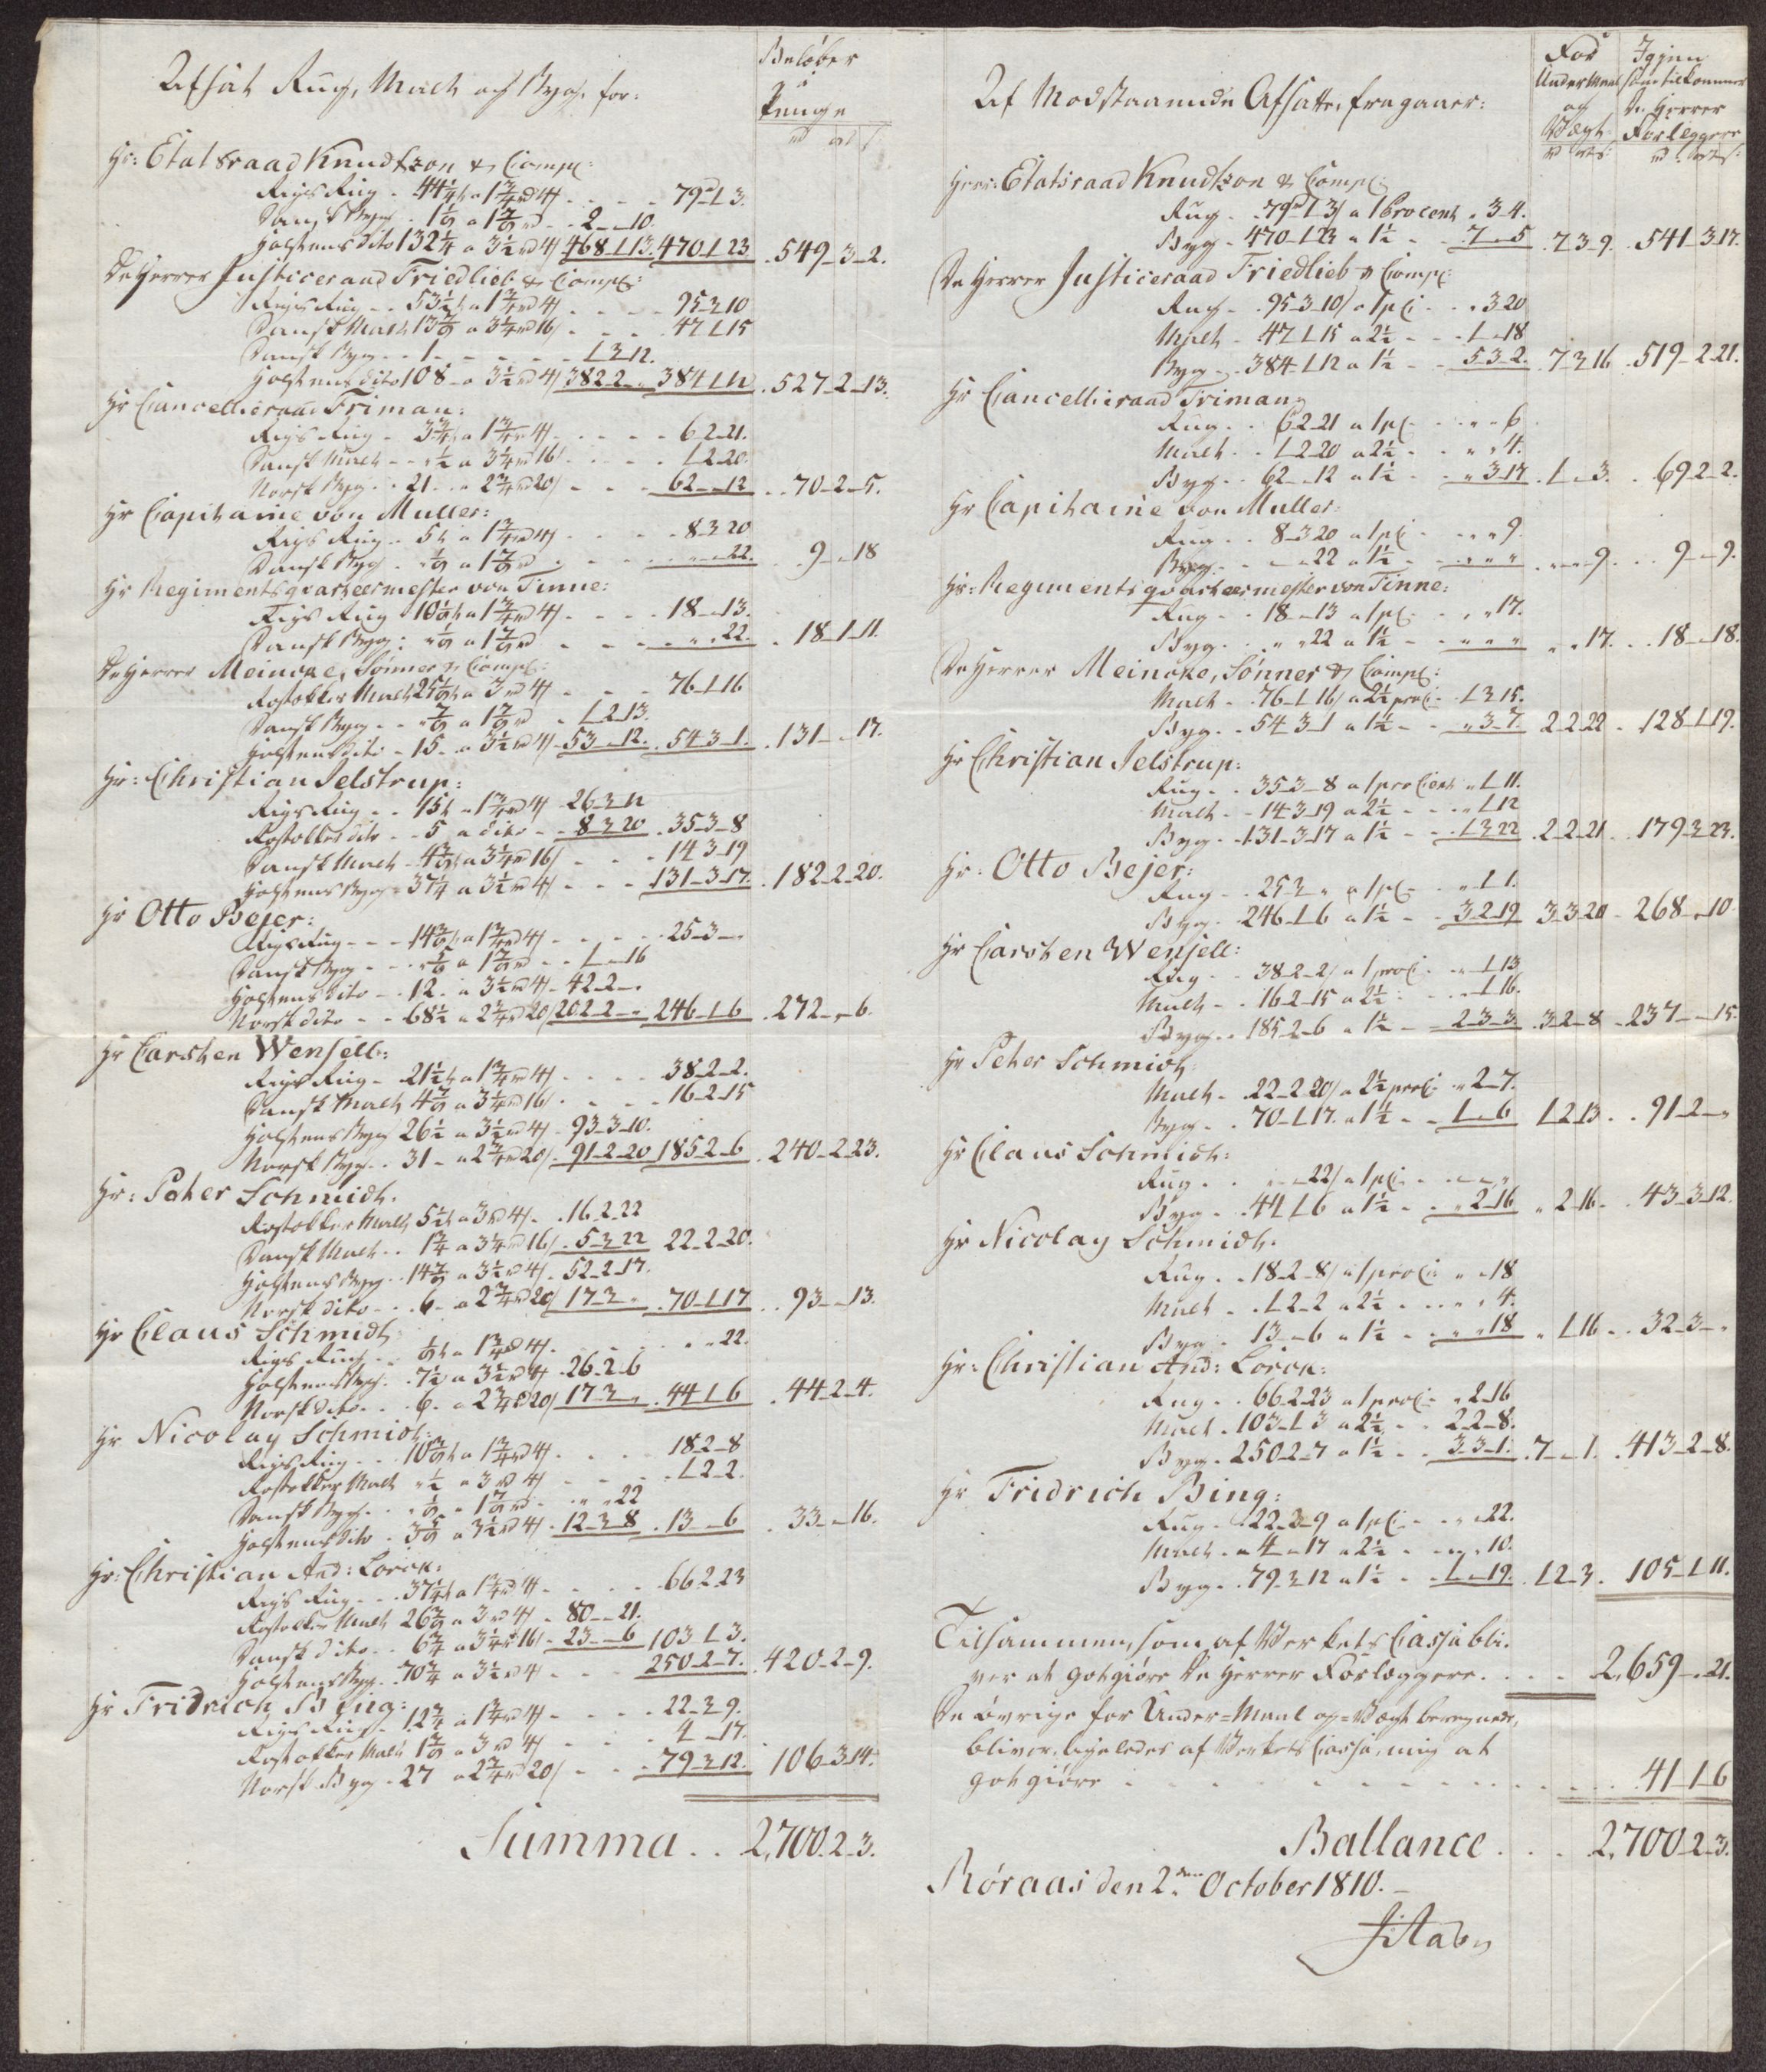 Afsat Rug, Malt og Byg, for:
Beløber
i
Penge
Hr: Etatsraad Knudtzon & Comp:
Rigs Rug . 44 1/4 t a 1 3/4 rd 4 s . . . 79-1-3.
Dansk Byg . 1 1/9 a 1 7/9 rd . . 2 - „ 10.
Holstens dito 132 1/4 a 3 1/2 rd 4 s 468-1-13. 470-1-23 . 549-3-2.
De Herrer Justiceraad Friedlieb & Comp:
Rigs Rug . . 53 1/2 t a 1 3/4 rd 4 s . . . 95-3-10
Dansk Malt 13 7/9 a 3 1/4 rd 16 s . . . 47-1-15
Dansk Byg . . 1 - . . . . 1-3-12.
Holstens dito 108 - a 3 1/2 rd 4 s 382-2-„ 384-1-12 . 527-2-13.
Hr Cancelliraad Friman:
Rigs Rug . 3 3/4 t a 1 3/4 rd 4 s . . . . 6-2-21.
Dansk Malt . . „ 1/2 a 3 1/4 rd 16 s . . . 1-2-20.
Norsk Byg . . 21 . . a 2 3/4 rd 20 s . . . 62-„-12 . . 70-2-5.
Hr Capitaine von Muller:
Rigs Rug . . 5 t a 1 3/4 rd 4 s . . . . 8-3-20
Dansk Byg . . 1/9 a 1 7/9 rd . . . . „-„-22. . 9-„-18
Hr Regimentsqvarteermester von Tinne:
Rigs Rug 10 1/9 t a 1 3/4 rd 4 s . . . . 18-„-13.
Dansk Byg: „ 1/9 a 1 7/9 rd . . . „-„-22. . 18-1-11.
De Herrer Meincke, Sønner & Comp:
Rostokker Malt 25 1/9 t a 3 rd 4 s . . . 76-1-16
Dansk Byg . . „ 7/9 a 1 7/9 rd . 1-2-13.
Holstens dito . 15 . a 3 1/2 rd 4 s 53-„-12. . 54-3-1. . 131-„-17.
Hr: Christian Jelstrup:
Rigs Rug . . 15 t a 1 3/4 rd 4 s . 26-3-12
Rostokker dito . . 5 a dito . . 8-3-20 . 35-3-8
Dansk Malt . 4 3/9 t a 3 1/4 rd 16 s . . . 14-3-19
Holstens Byg . 37 1/4 a 3 1/2 rd 4 s . . . 131-3-17. . 182-2-20.
Hr Otto Bejer:
Rigs Rug . . . 14 3/9 t a 1 3/4 rd 4 s . . . 25-3-„
Dansk Byg . . . „ a 1 7/9 rd . . 1-„-16
Holstens dito . . 12 . a 3 1/2 rd 4 s . 42-2-„
Norsk dito . . 68 1/2 a 2 3/4 rd 20 s 202-2-„ 246-1-6 . 272-„-6.
Hr Carsten Wensell:
Rigs Rug . 21 1/2 t a 1 3/4 rd 4 s . . . 38-2-2.
Dansk Malt 4 7/9 a 3 1/4 rd 16 s . . . 16-2-15
Holstens Byg 26 1/2 a 3 1/2 rd 4 s . 93-3-10.
Norsk Byg . . 31 - a 2 3/4 rd 20 s . 91-2-20 185-2-6 . 240-2-23.
Hr: Peter Schmidt.
Rostokker Malt 5 1/2 t a 3 rd 4 s . . 16-2-22
Dansk Malt . . 1 3/4 a 3 1/4 rd 16 s . 5-3-22 22-2-20.
Holstens Byg . . 14 7/9 a 3 1/2 rd 4 s . 52-2-17.
Norsk dito . . . 6 . a 2 3/4 rd 20 s 17-3-„ . 70-1-17 . . 93-„-13.
Hr Claus Schmidt
Rigs Rug . . 1/9 t a 1 3/4 rd 4 s . . . . „-„-22.
Holstens Byg . . 7 1/2 a 3 1/2 rd 4 s . 26-2-6
Norsk dito . . . 6 . a 2 3/4 rd 20 s 17-3-„ . 44-1-6 . 44-2-4.
Hr Nicolay Schmidt:
Rigs Rug . . 10 3/9 t a 1 3/4 rd 4 s . . . 18-2-8
Rostokker Malt „ 1/2 a 3 rd 4 s . . . . 1-2-2.
Dansk Byg . . „ 1/9 a 1 7/9 rd . „-„-22
Holstens dito . 3 5/9 a 3 1/2 rd 4 s . 12-3-8 . 13-„-6 . 33-„-16.
Hr: Christian And: Lorck:
Rigs Rug . . . 37 1/4 t a 1 3/4 rd 4 s . . . . 66-2-23
Rostokker Malt 26 3/9 a 3 rd 4 s . 80-„-21.
Dansk dito . . 6 3/4 a 3 1/4 rd 16 s . 23-„-6 103-1-3.
Holstens Byg . 70 3/4 a 3 1/2 rd 4 s . . . 250-2-7. . 420-2-9.
Hr Fridrich Bing:
Rigs Rug . 12 3/4 a 1 3/4 rd 4 s . . . . 22-3-9.
Rostokker Malt 1 3/9 a 3 rd 4 s . . . 4-„-17.
Norsk Byg . 27 a 2 3/4 rd 20 s . . . 79-3-12. 106-3-14.
Summa . . 2,700-2-3.
Af Modstaaende Afsatte, fragaaer:
For
Under Maal
og
Vægt:
Igjen
som tilkommer
De Herrer
Forleggere
Herr: Etatsraad Knudtzon & Comp:
Rug . . 79-1-3 a 1 Procent . 3-4.
Byg . 470-1-23 a 1 1/2 . . 7-„-5 . 7-3-9. . 541-3-17.
De Herrer Justiceraad Friedlieb & Comp:
Rug . . 95-3-10 a 1 pC: . . „-3-20
Malt . 47-1-15 a 2 1/2 . . . 1-„-18
Byg . . 384-1-12 a 1 1/2 . . 5-3-2. 7-3-16 . 519-2-21.
Hr Cancelliraad Friman
Rug . . 6-2-21 a 1 pC: . . „-„-6
Malt . . 1-2-20 a 2 1/2 . . „-„-4.
Byg . . 62-„-12 a 1 1/2 . . „-3-17 . 1-„-3. . 69-2-2.
Hr Capitaine von Muller:
Rug . . 8-3-20 a 1 pC: . . „-„-9.
Byg . . „-„-22 a 1 1/2 . . „-„-„ . „-„-9 . . 9-„-9.
Hr: Regimentsqvarteermester von Tinne:
Rug . . 18-„-13 a 1 pC: . . „-„-17.
Byg . . „-„-22 a 1 1/2 . . „-„-„ „-„-17. . . 18-„-18.
De Herrer Meincke, Sønner & Comp:
Malt . 76-1-16 a 2 1/2 proC: . 1-3-15.
Byg . . 54-3-1 a 1 1/2 . . „-3-7. 2-2-22 . 128-1-19.
Hr Christian Jelstrup:
Rug . . 35-3-8 a 1 pro Cent „-1-11.
Malt . . 14-3-19 a 2 1/2 . . . „-1-12
Byg . 131-3-17 a 1 1/2 . . 1-3-22 . 2-2-21 . . 179-3-23.
Hr: Otto Bejer:
Rug . . 25-3-„ a 1 pC: . . „-1-1.
Byg . 246-1-6 a 1 1/2 . . 3-2-19 3-3-20 . 268-„-10
Hr Carsten Wensell:
Rug . . 38-2-2 a 1 proC: . „-1-13
Malt . . 16-2-15 a 2 1/2 . . . „-1-16.
Byg . . 185-2-6 a 1 1/2 . . 2-3-3 . 3-2-8 . 237-„-15.
Hr Peter Schmidt
Malt . 22-2-20 a 2 1/2 proC: . „-2-7.
Byg . . 70-1-17. a 1 1/2 . . 1-„-6 1-2-13 . . 91-2-„
Hr Claus Schmidt:
Rug . . „-„-22 a 1 pC: . . „-„-„
Byg . . 44-1-6 a 1 1/2 . . „-2-16 „-2-16 . . 43-3-12.
Hr Nicolay Schmidt.
Rug . . 18-2-8 a 1 proC: „-„-18
Malt . . 1-2-2 a 2 1/2 . . . „-„-4.
Byg . 13-„-6 a 1 1/2 . . „-„-18 „-1-16 . . 32-3-„
Hr: Christian And: Lorck:
Rug . . 66-2-23 a 1 proC: „-2-16
Malt . 103-1-3 a 2 1/2 . . 2-2-8.
Byg . 250-2-7 a 1 1/2 . . 3-3-1. . 7-„-1. . 413-2-8.
Hr Fridrich Bing:
Rug . . 22-3-9 a 1 pC: . . „-„-22.
Malt . . 4-„-17 a 2 1/2 . . „-„-10.
Byg . . 79-3-12 a 1 1/2 . . 1-„-19. . 1-2-3. 105-1-11.
Tilsammen, som af Verkets Cassa bli-
ver at godtgiøre De Herrer Forlæggere . . . . 2,659-„-21.
De øvrige for Under-Maal og -Vægt beregnede,
bliver ligeledes af Verkets Cassa, mig at
godtgiøre . . . . . . . . . . . 41-1-6
Ballance . . . 2,700-2-3.
Røraas den 2den October 1810.